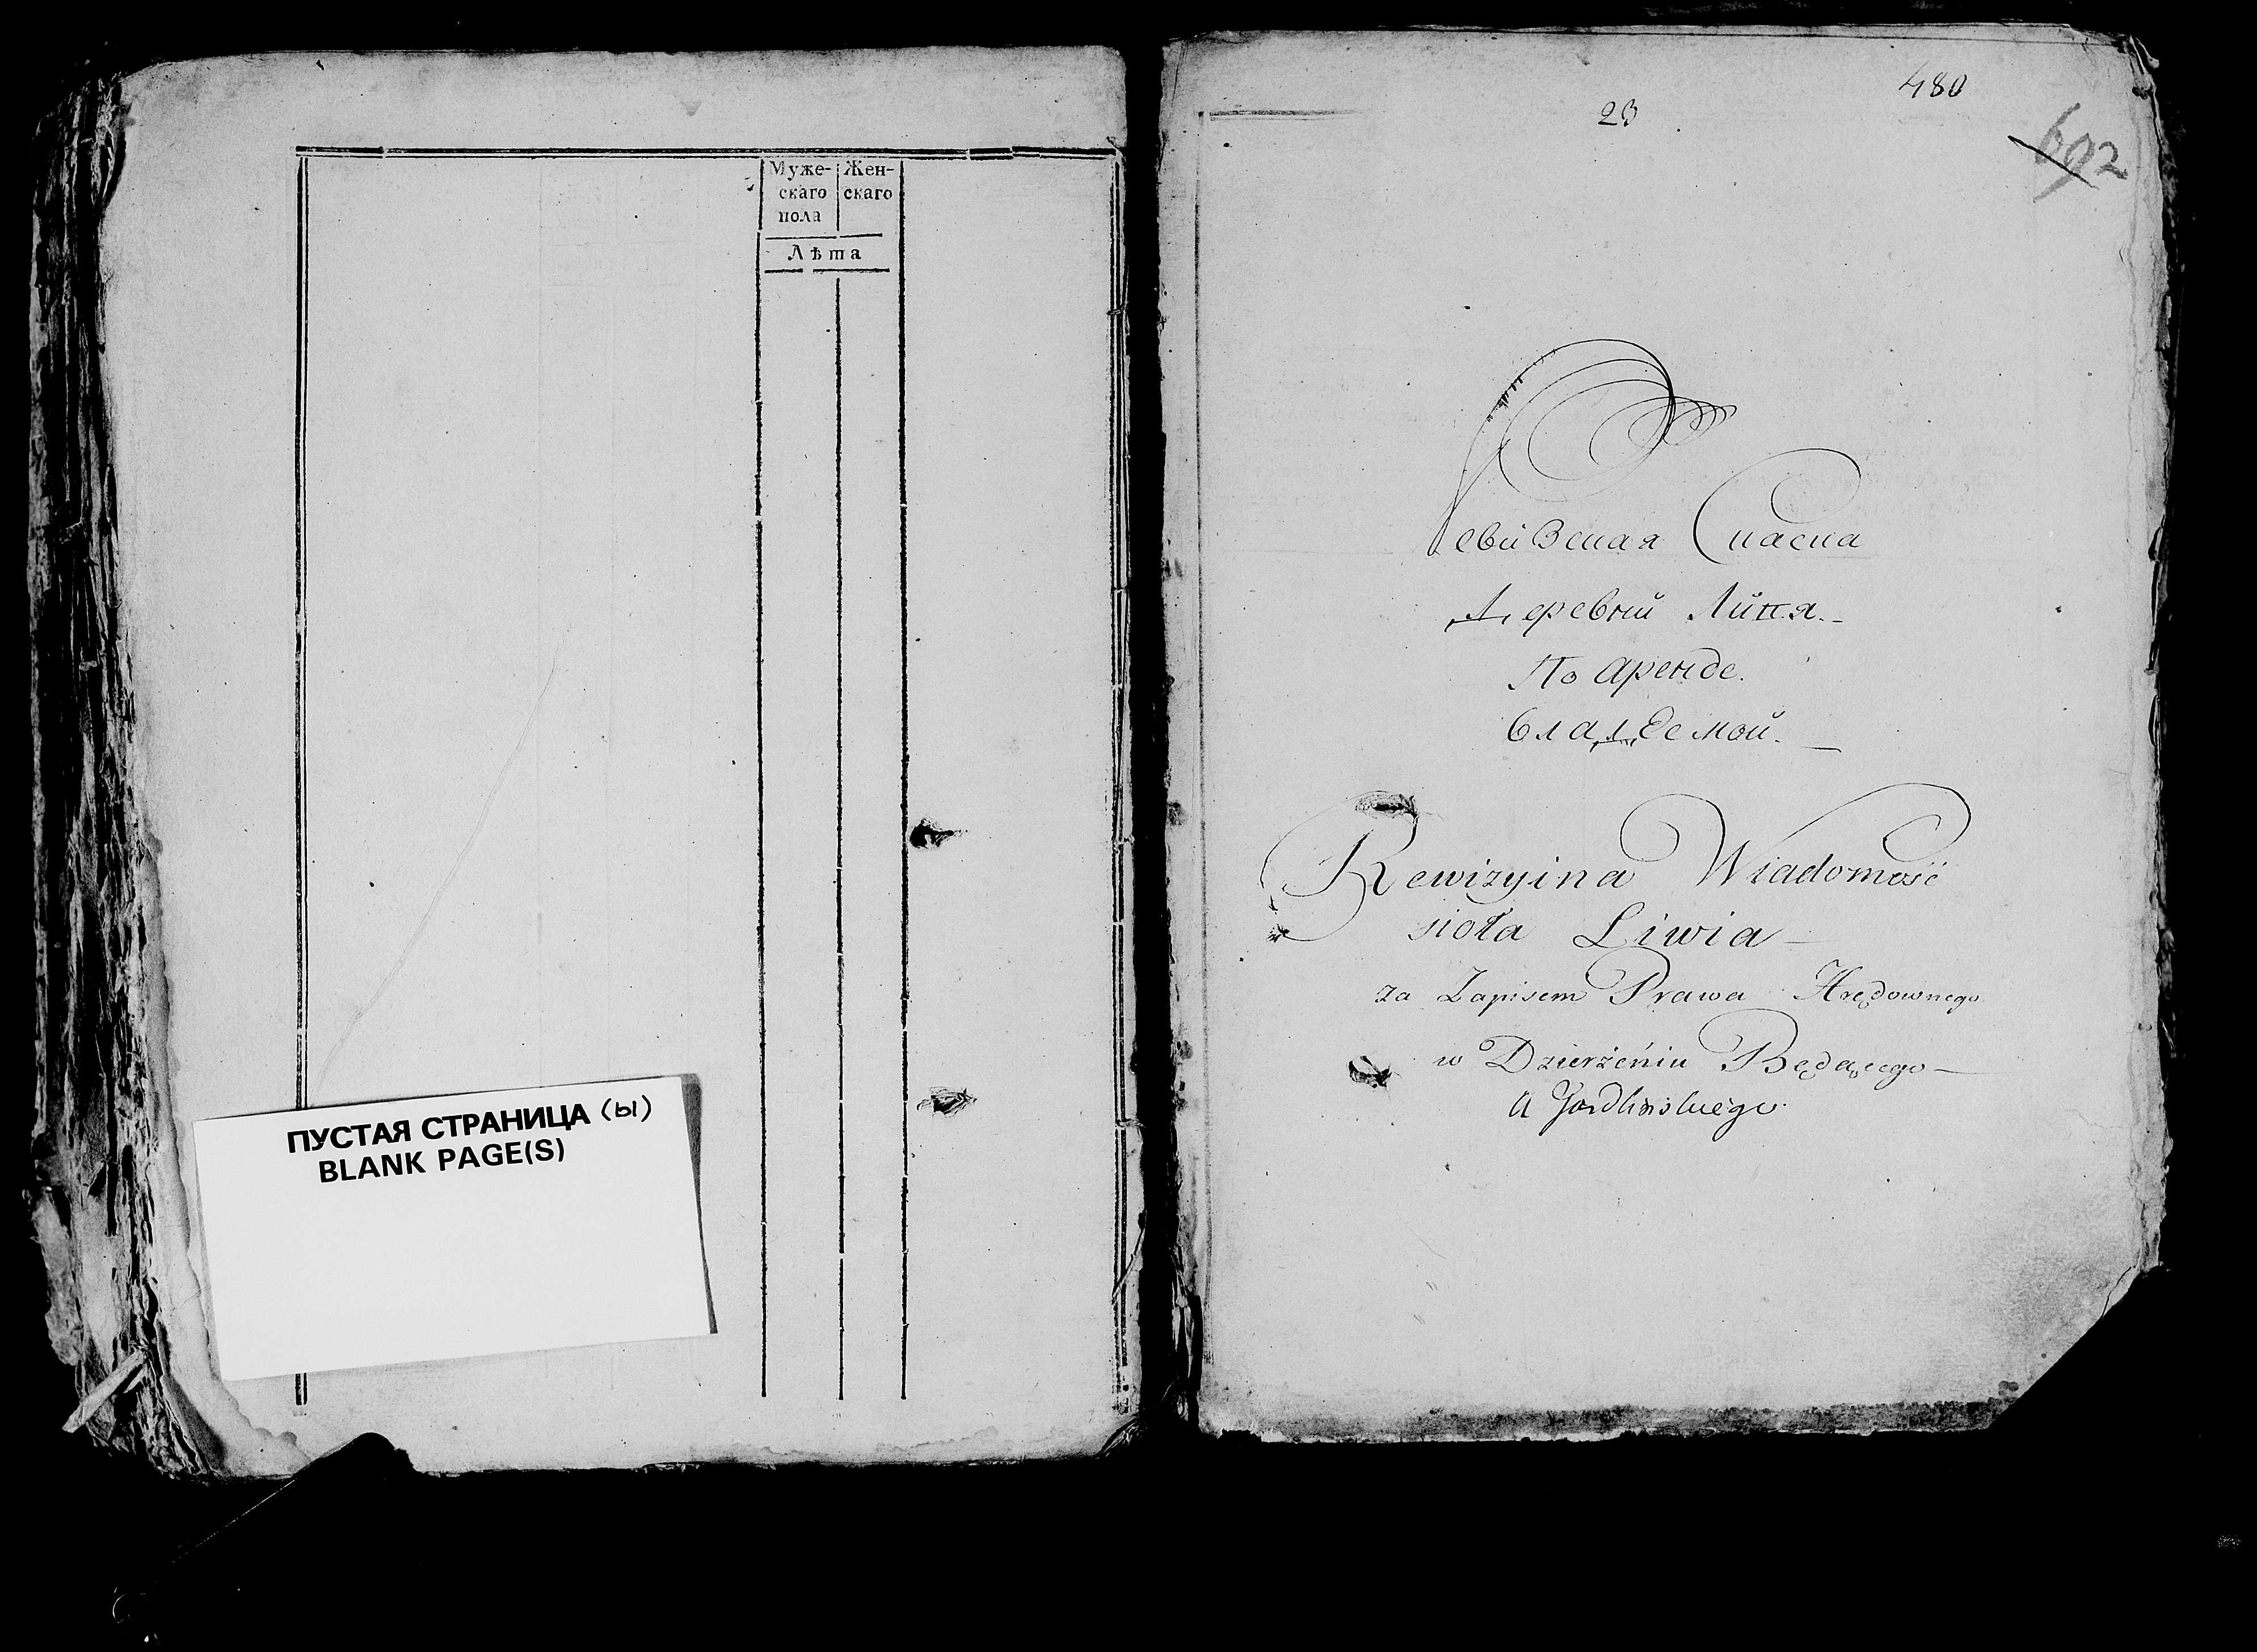 Муже-
скаго
пола
Жен-
скаго
Лѣта
ПУСТАЯ СТРАНИЦА (ы)
BLANK PAGE(S)
480
23
692
Ревизская Сказка
Деревни
По аренде.
владемой.
Rewizyina Wiadomość
sioła Liwia
za Zapisem Prawa Arędownego
w Dzierżeniu Będącego